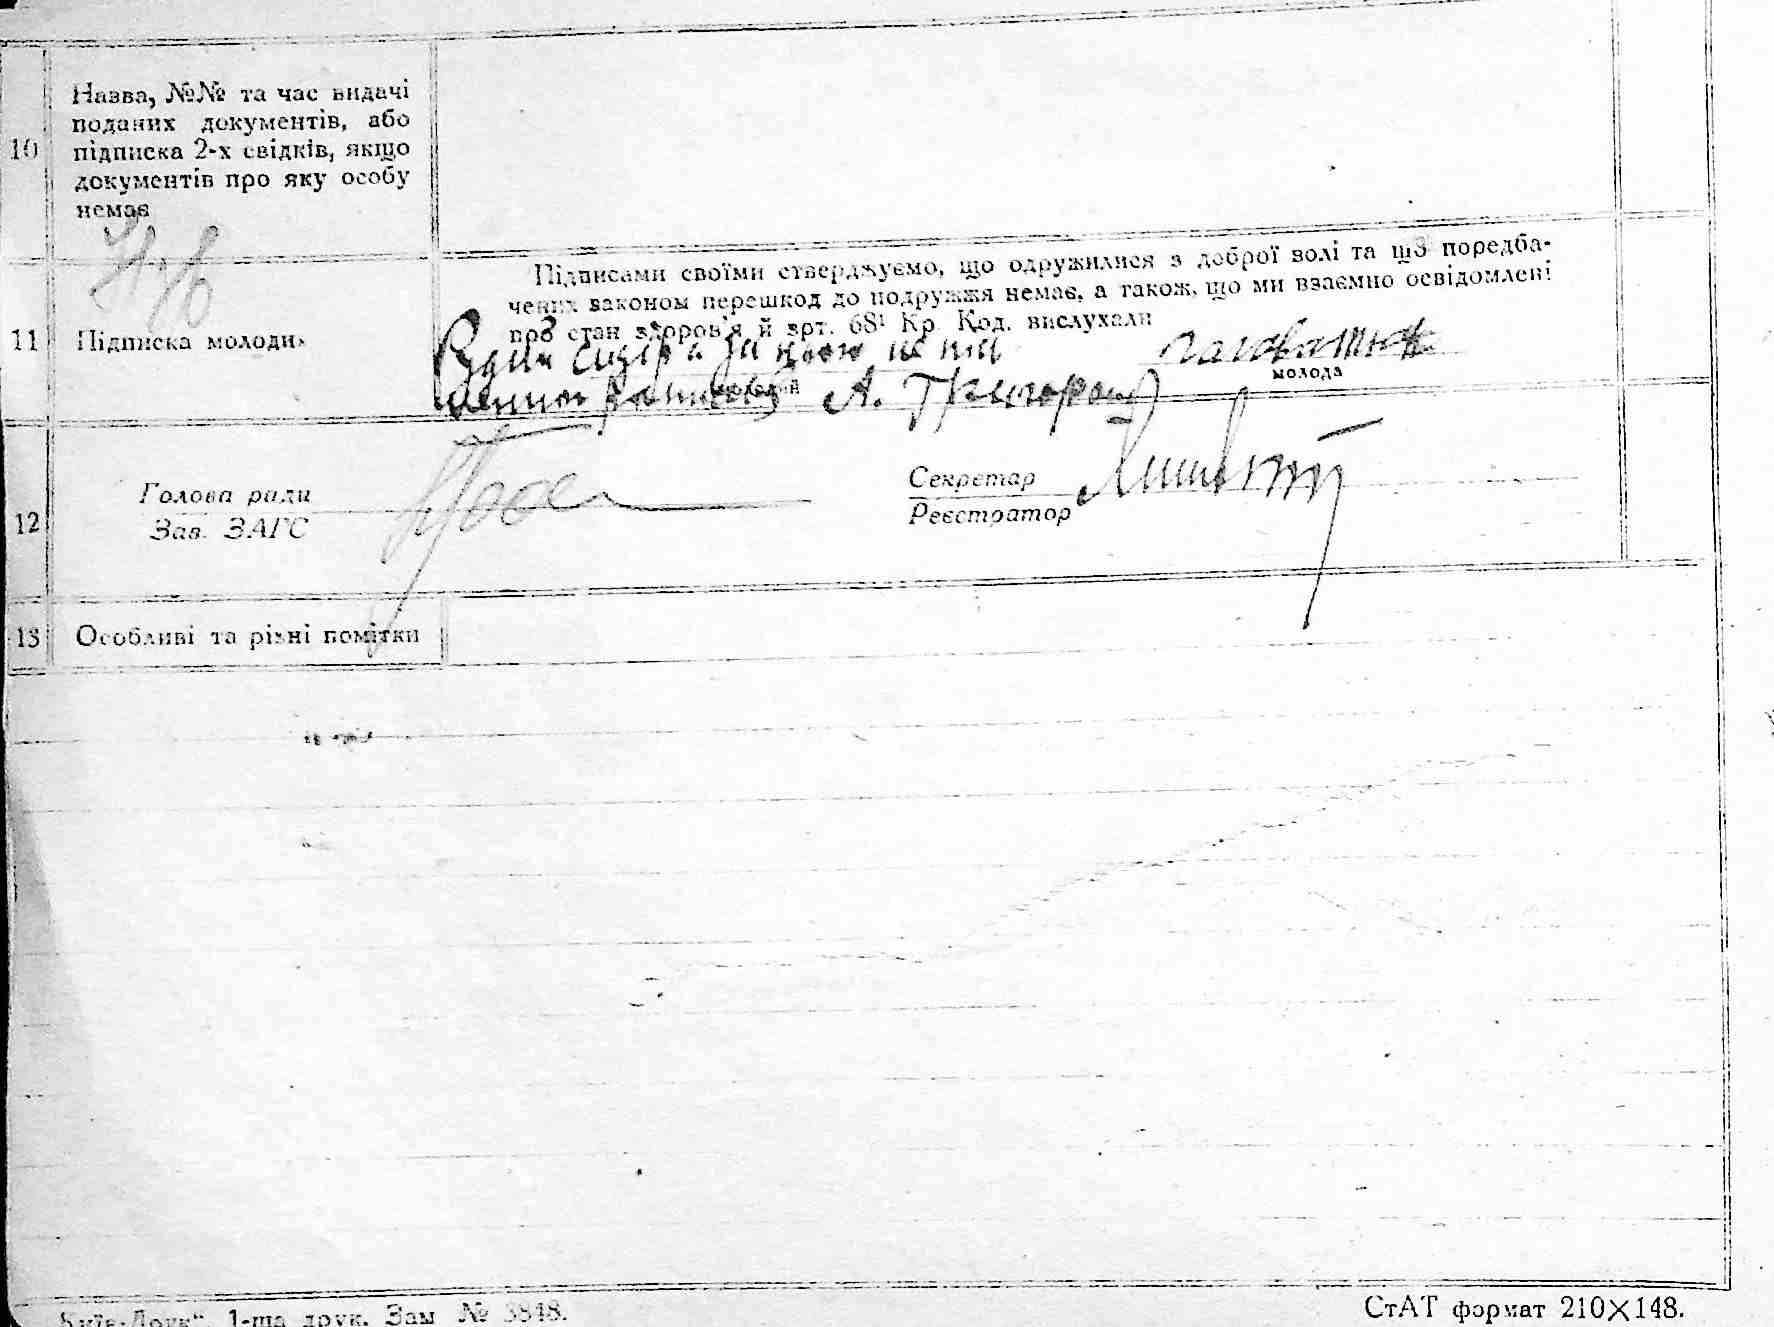 10
Назва, №№ та час видачі
поданих документів, або
підписка 2-х свідків, якщо
документів про яку особу
немає
11
Підписка молодих
Підписами своїми стверджуємо, що одружилися з доброї волі та що поредба-
чених законом перешкод до подружжя немає, а також, що ми взаємно освідомлені
про стан здоров'я й арт. 68¹ Кр. Код. вислухали
молода
А. Григор
12
Голова ради
Зав. ЗАГС
Секретар
Реєстратор
13
Особливі та різні помітки
"Київ-Друк", 1-ша друк. Зам № 3848.
СтАТ формат 210×148.